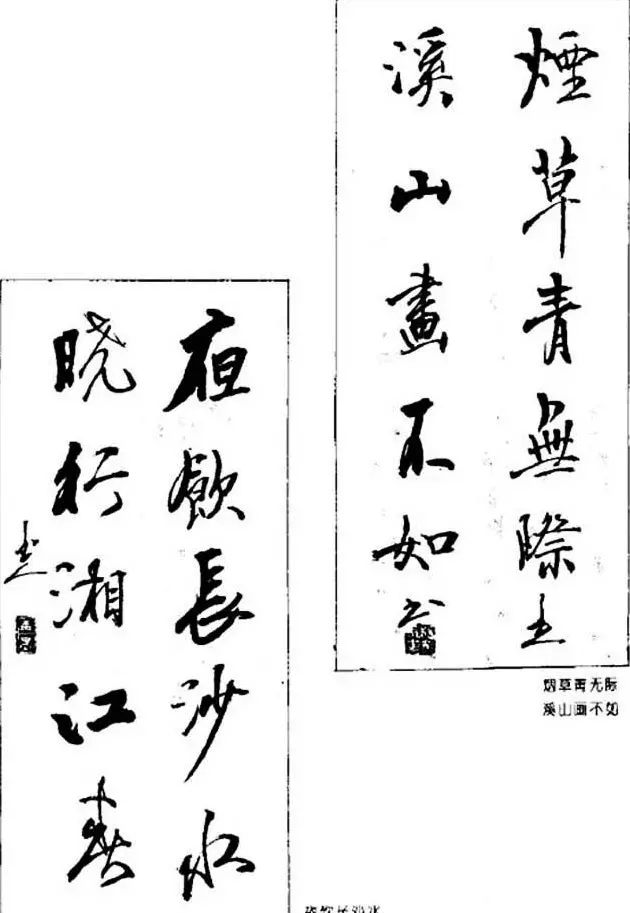 煙草青無際
溪山畫不如
烟草青无际
溪山画不如
夜飲長沙水
曉行湘江春